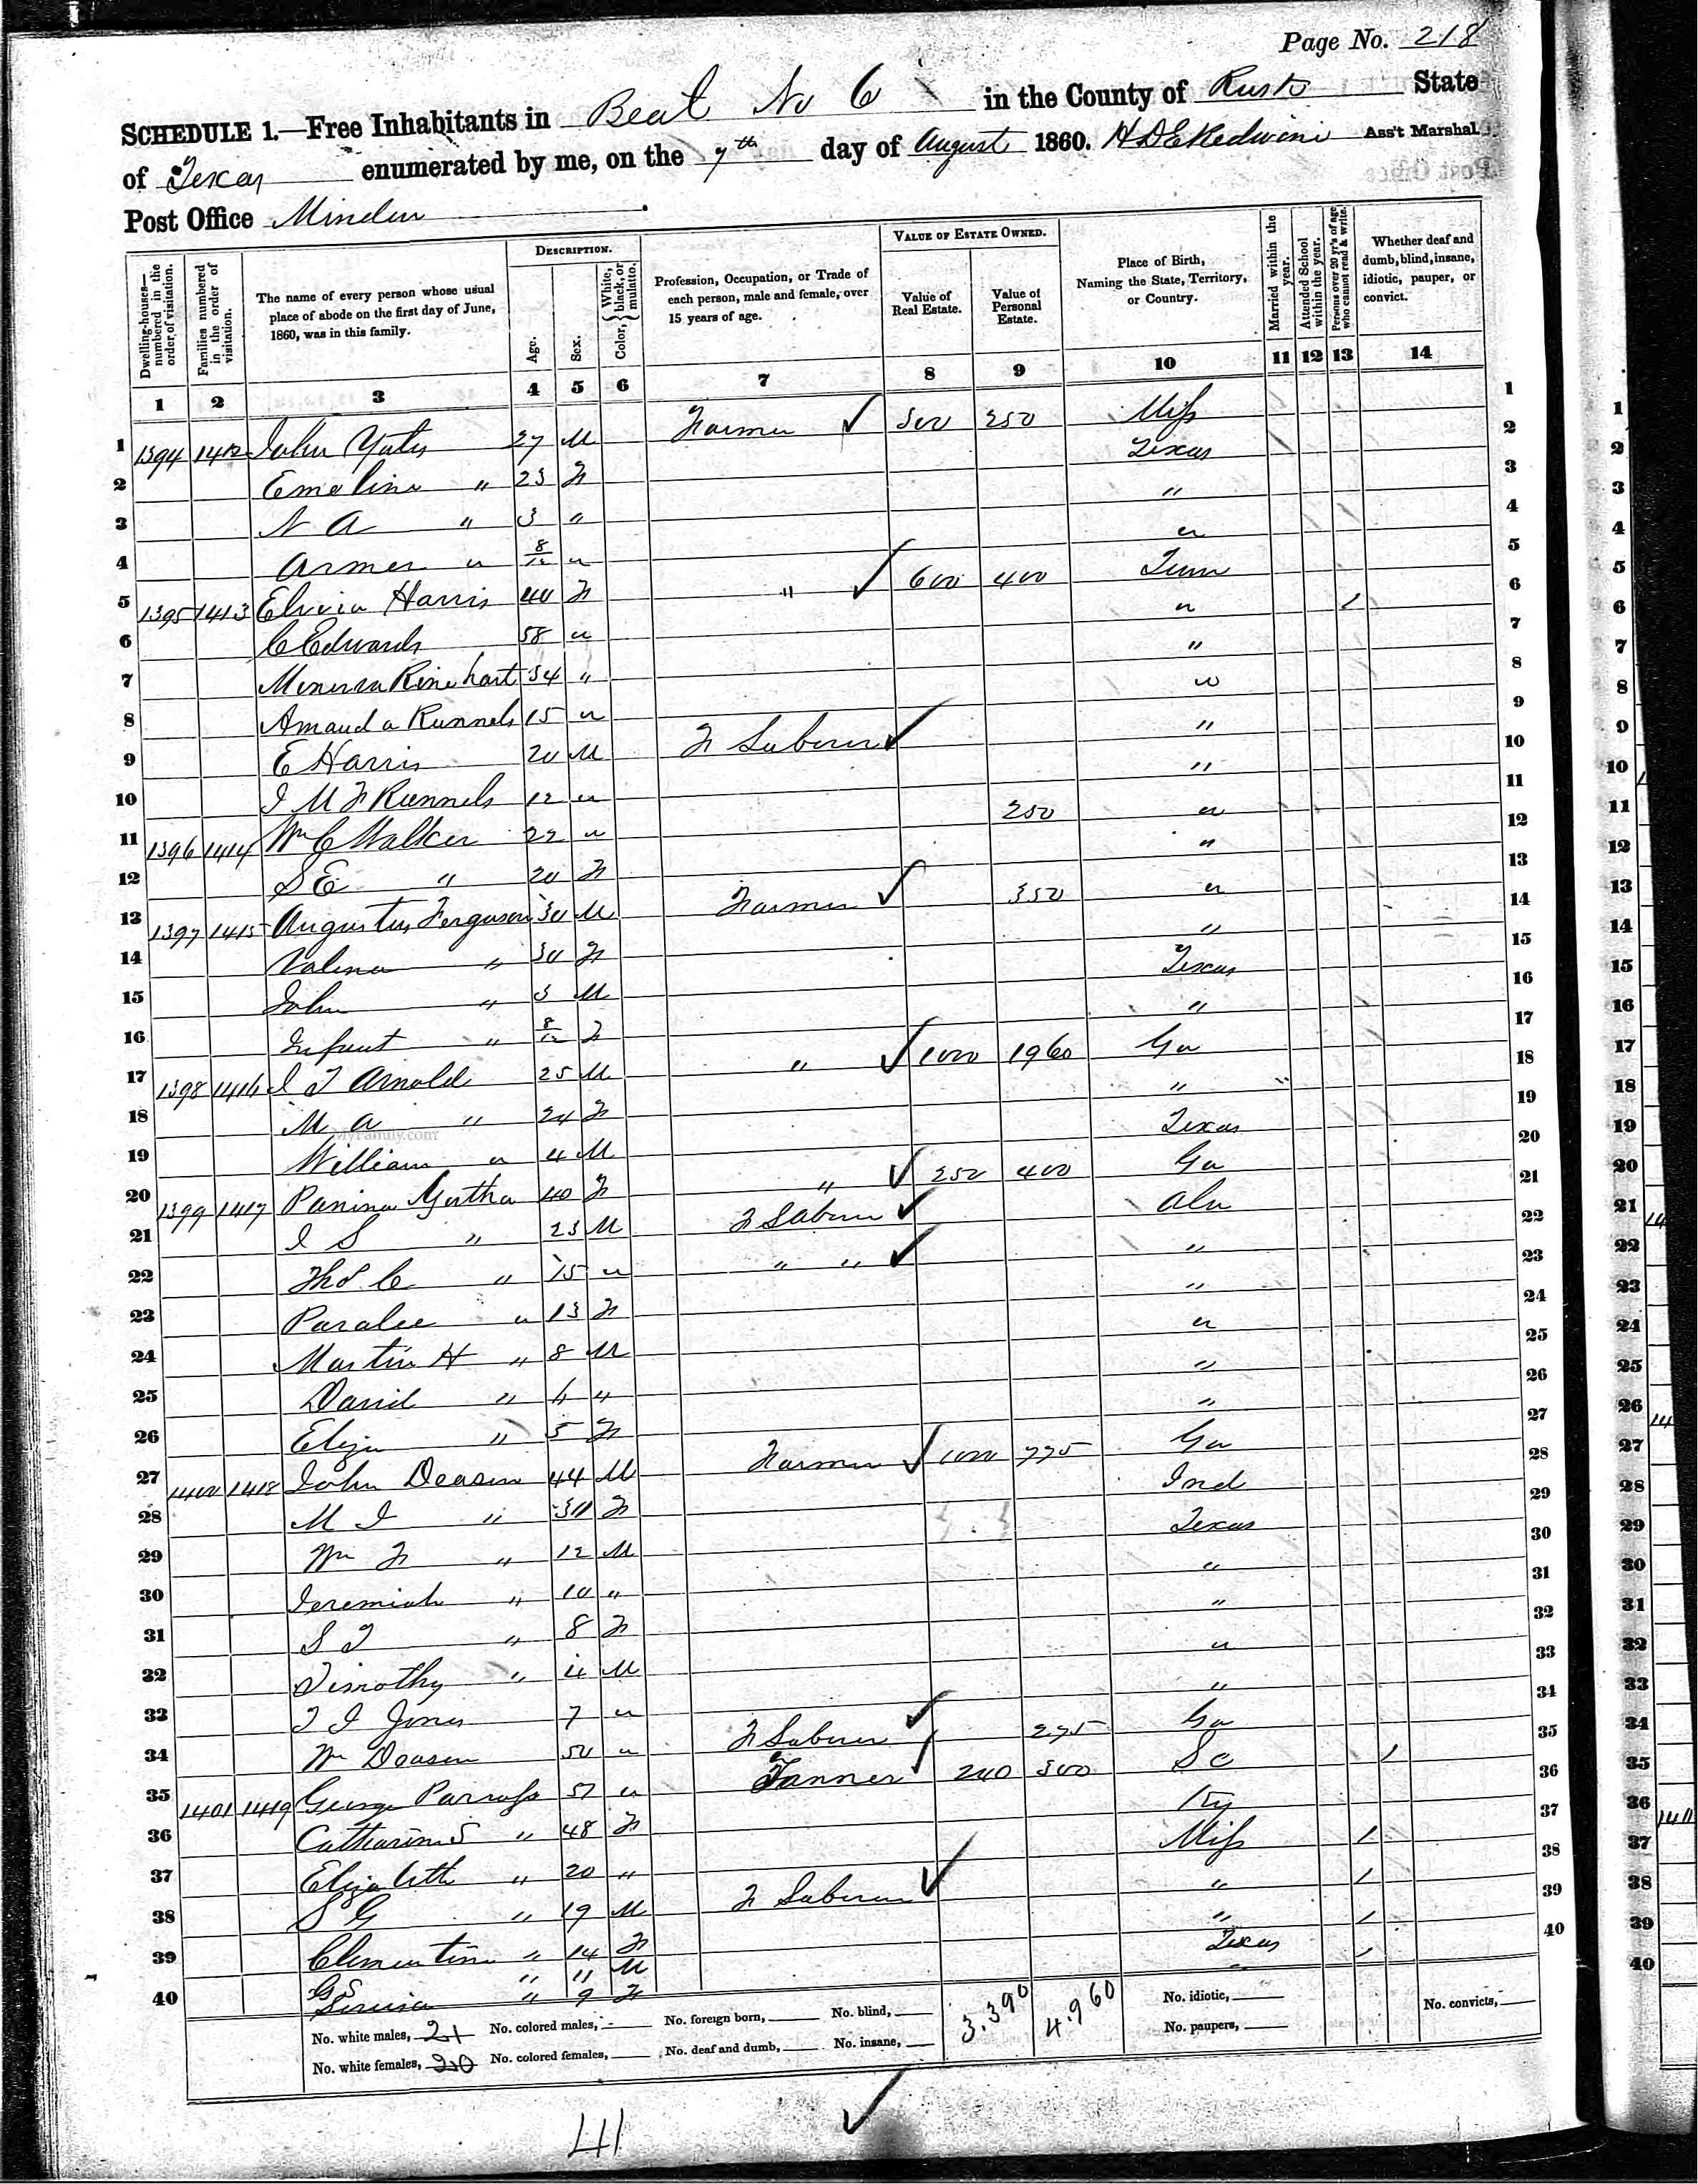 Page No. 218
SCHEDULE 1.—Free Inhabitants in Beat No 6 in the County of Rusk State
of Texas enumerated by me, on the 7th day of August 1860. Ass't Marshal.
Post Office Minden
DESCRIPTION. VALUE OF ESTATE OWNED.
Dwelling-houses—numbered in the order of visitation. Families numbered in the order of visitation. The name of every person whose usual place of abode on the first day of June, 1860, was in this family. Age. Sex. Color, White, black, or mulatto. Profession, Occupation, or Trade of each person, male and female, over 15 years of age. Value of Real Estate. Value of Personal Estate. Place of Birth, Naming the State, Territory, or Country. Married within the year. Attended School within the year. Persons over 20 yr's of age who cannot read & write. Whether deaf and dumb, blind, insane, idiotic, pauper, or convict.
1 2 3 4 5 6 7 8 9 10 11 12 13 14
1 1394 1412 John Yates 27 M Farmer ✓ 300 250 Miss 1
2 Emeline " 23 F Texas 2
3 N A " 3 " " 3
4 Armer " 8/12 " " 4
5 1395 1413 Elvira Harris 40 F " ✓ 600 400 Tenn 5
6 C Edwards 58 " " / 6
7 Minerva Rinehart 34 " " 7
8 Amanda Runnels 15 " " 8
9 E Harris 20 M F Laborer ✓ " 9
10 J M F Runnels 12 " " 10
11 1396 1414 Wm C Walker 22 " 250 " 11
12 S E " 20 F " 12
13 1397 1415 Augustus Ferguson 30 M Farmer ✓ 350 " 13
14 Valena " 30 F " 14
15 John " 3 M Texas 15
16 Infant " 8/12 F " 16
17 1398 1416 J T Arnold 25 M " ✓ 1000 1960 Ga 17
18 M A " 24 F " 18
MyFamily.com
19 William " 4 M Texas 19
20 1399 1417 40 F " ✓ 250 400 Ga 20
21 J S " 23 M F Laborer ✓ Ala 21
22 Thos C " 15 " " " ✓ " 22
23 Paralee " 13 F " 23
24 Martin H " 8 M " 24
25 David " 6 " " 25
26 Eliza " 5 F " 26
27 1400 1418 John Deason 44 M Farmer ✓ 1000 775 Ga 27
28 M J " 30 F Ind 28
29 Wm F " 12 M Texas 29
30 Jeremiah " 10 " " 30
31 S T " 8 F " 31
32 Timothy " 4 M " 32
33 T J Jones 7 " " 33
34 Wm Deason 50 " F Laborer ✓ 275 Ga 34
35 1401 1419 George 57 " Tanner ✓ 240 300 S C / 35
36 Catharine S " 48 F Ky 36
37 Elizabeth " 20 " Miss / 37
38 S G " 19 M F Laborer ✓ " / 38
39 Clementine " 14 F " / 39
G S " 11 M Texas /
40 Louisa " 9 F " 40
No. white males, 21 No. colored males, No. foreign born, No. blind, 3.390 4.960 No. idiotic, No. convicts,
No. white females, 20 No. colored females, No. deaf and dumb, No. insane, No. paupers,
41 ✓